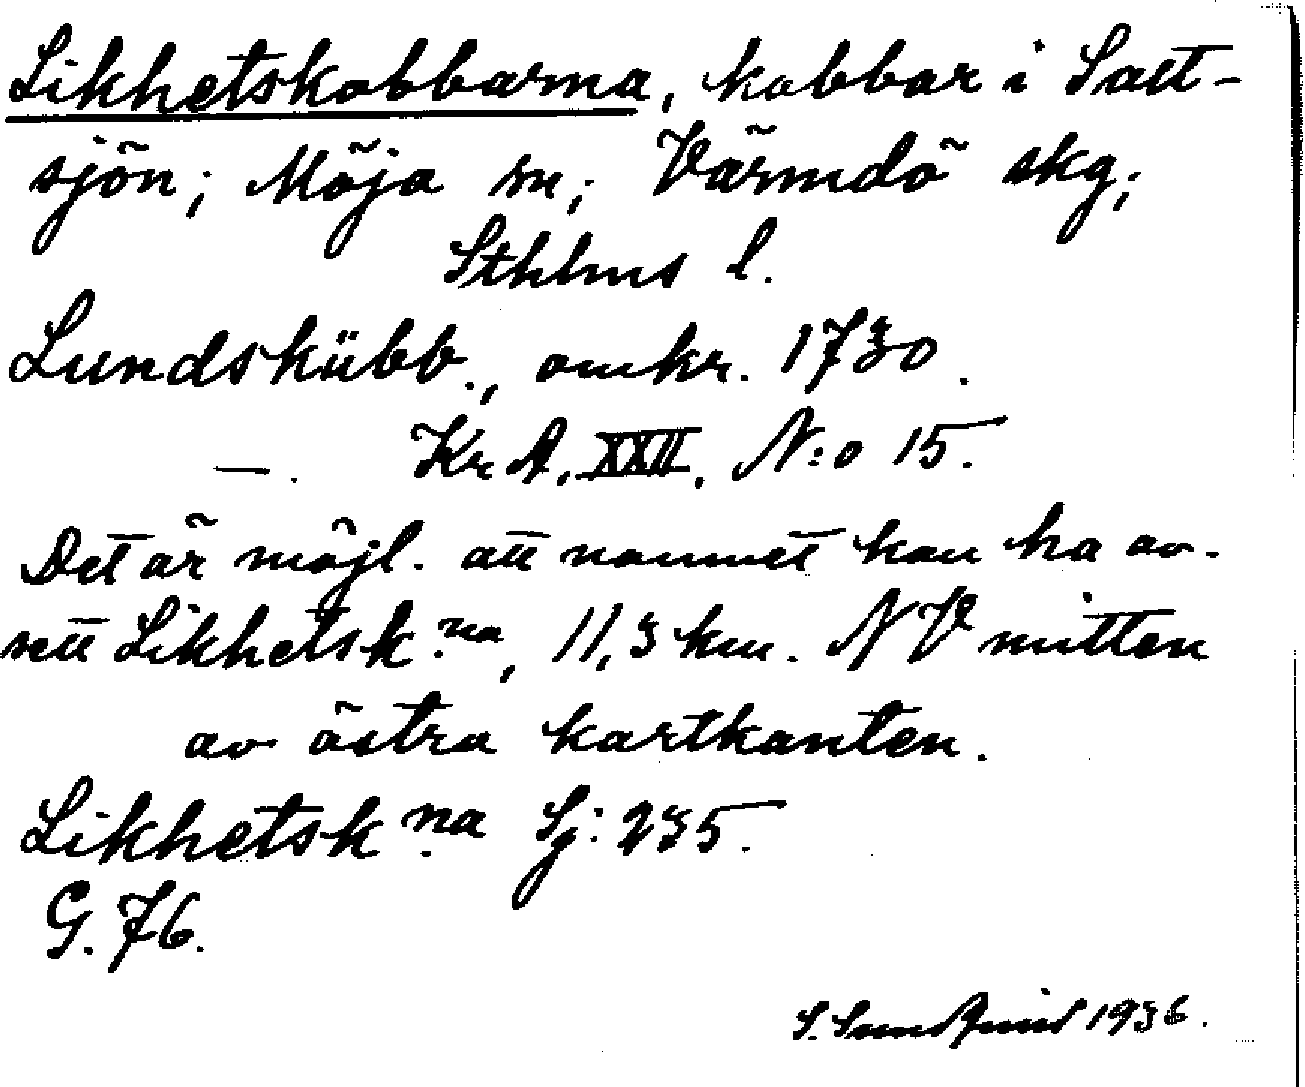 Likhetskobbarna, kobbar i Salt-
sjön; Möja sn; Värmdö skg;
Sthlms l.
Lundskübb., omkr. 1730.
—. Kr A, XXII, N:o 15.
Det är möjl. att namnet kan ha av-
sett Likhetsk.na, 11,3 km. NV mitten
av östra kartkanten.
Likhetsk.na Sj: 235.
G. 76.
S. Sundquist 1936.